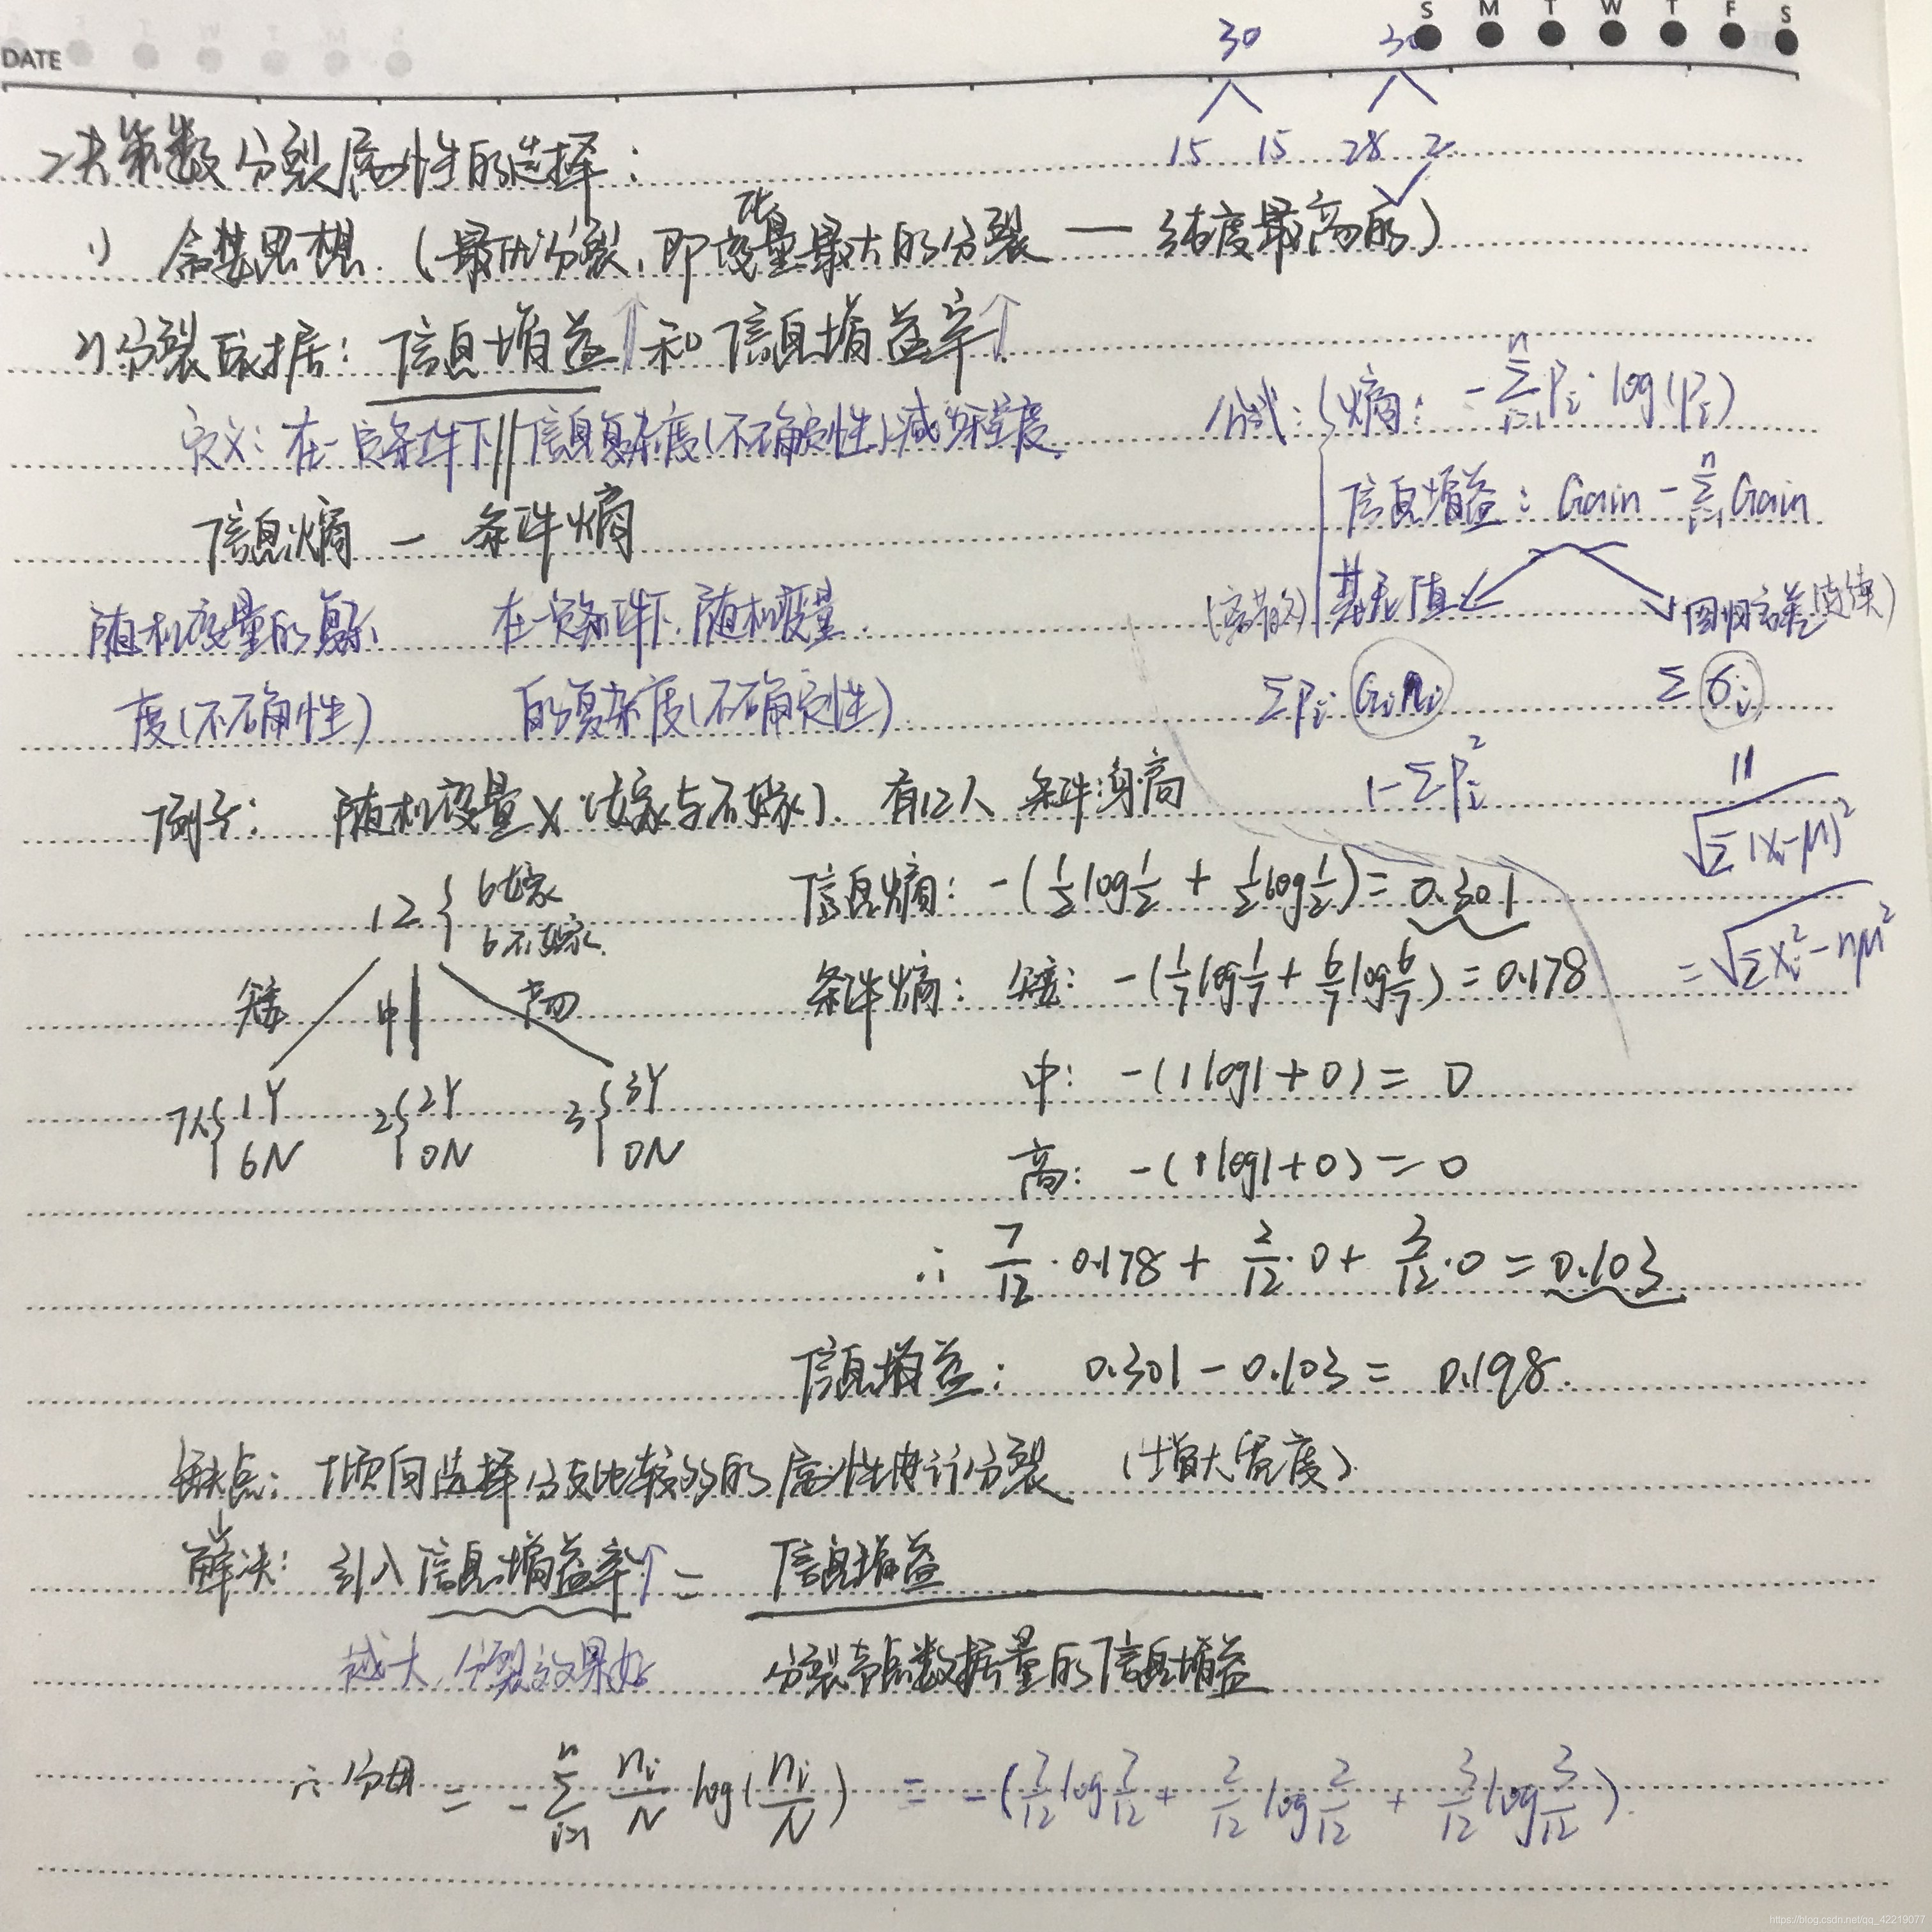 DATE
S M T W T F S
30 30
15 15 28 2
二决策数分裂属性的选择:
1) 贪婪思想.(最优分裂,即纯度量最大的分裂 — 纯度最高的)
2) 分裂依据: 信息增益↑和信息增益率↑.
定义: 在一定条件下||信息复杂度(不确定性)减少程度.
公式: { 熵: -∑_{i=1}^{n} P_i · log(P_i)
信息熵 - 条件熵
信息增益: Gain - ∑_{i=1}^{n} Gain
随机变量的复杂 在一定条件下.随机变量.
(离散的) 基尼值 回归方差(连续)
度(不确性) 的复杂度(不确定性)
∑P_i Gini ∑σ_i
1-∑P_i²
例子: 随机变量X(嫁与不嫁). 有12人 条件身高
‖
√∑(X_i-μ)²
=√∑X_i²-nμ²
12{ 6嫁 6不嫁.
矮 中 高
7人{1Y 6N 2{2Y 0N 3{3Y 0N
信息熵: -(1/2 log 1/2 + 1/2 log 1/2) = 0.301
条件熵: 矮: -(1/7 log 1/7 + 6/7 log 6/7) = 0.178
中: -(1log1+0) = 0
高: -(1log1+0) = 0
∴ 7/12 · 0.178 + 2/12 · 0 + 3/12 · 0 = 0.103
信息增益: 0.301 - 0.103 = 0.198.
缺点: 倾向选择分支比较多的属性进行分裂 (增大宽度).
解决: 引入信息增益率↑ = 信息增益
越大,分裂效果好 分裂节点数据量的信息增益
∴ 分母 = -∑_{i=1}^{n} n_i/N log(n_i/N) = -(7/12 log 7/12 + 2/12 log 2/12 + 3/12 log 3/12).
https://blog.csdn.net/qq_42219077